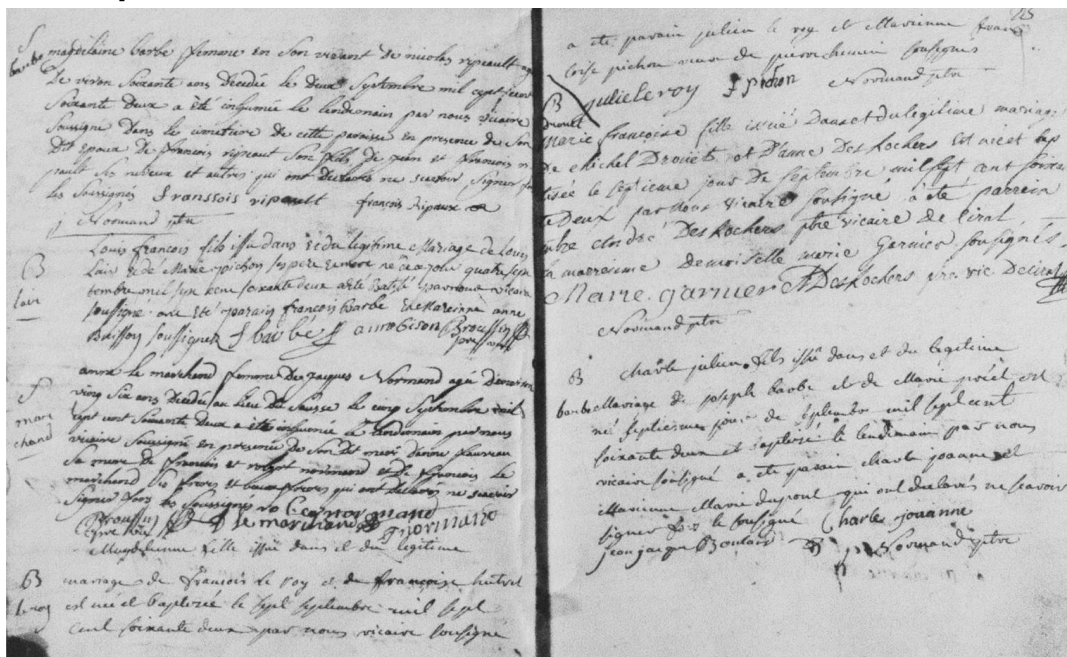 S
barbe
magdelaine barbe femme en Son vivant de nicolas ripeault
De viron Soixante ans Decedée le Deux Septembre mil sept cent
Soixante Deux a été inhumée le lendemain par nous vicaire
Soussigné Dans le cimetiere de cette paroisse en presence de Son
Dit Epoux De francois ripeaut Son fils De jean et francois
pault Ses neveux et autres qui ont Declarés ne scavoir Signer
les Soussignés franssois ripault francois Ripaux
Normand ptre
B
Loir
Louis francois fils issu dans et du legitime Mariage de Louis
Loir et de Marie pichon ses pere et mere né ce jour quatre sep
tembre mil sept cent soixante deux a été Batisé par nous vicaire
soussigné ont été parain francois Barbe et Marianne anne
Buisson soussignez f barbé Broussin
S
mar
chand
anne le marchand femme De jacques Normand agée Denviron
vingt Six ans Decedée au lieu Du Sausse le cinq Septembre mil
sept cent Soixante Deux a été inhumée le lendemain par nous
vicaire Soussigné en presence de Son Dit mari Danne fauveau
Sa mere De francois et robert normand et De francois le
marchand Ses freres et beaux freres qui ont Declarés ne scavoir
Signer fors les Soussignés normand
Broussin le marchand normand
Magdelenne fille issüe dans et du legitime
B
leroy
mariage de francois Le roy et de francoise hutret
est née et baptezée le sept septembre mil sept
cent soixante deux par nous vicaire soussigné
a ete parain julien le roy et Marienne fran
coise pichon veuve de pierre soussignés
julie le roy f pichon Normand ptre
B
Drouet
Marie francoise fille issüe Dans et du legitime mariage
De Michel Drouet et D'anne Des Rochers est née et bap
tisée le septieme jour De septembre mil sept cent soixan
te Deux par Nous vicaire soussigné a été parrein
André Des Rochers ptre vicaire De Ciral
la mareinne Demoiselle marie Garnier soussignés
Marie garnier A DesRochers pre vic De Ciral
Normand ptre
B
barbe
Charle julien fils issü dans et du legitime
Mariage de joseph barbe et de Marie est
né septiesme jour de septembre mil sept cent
soixante deux et baptezé le lendemain par nous
vicaire soussigné a ete parain charle joanne et
Marienne Marie dupont qui ont declarés ne scavoir
signer le soussigné Charles jouanne
jean jacque Normand ptre